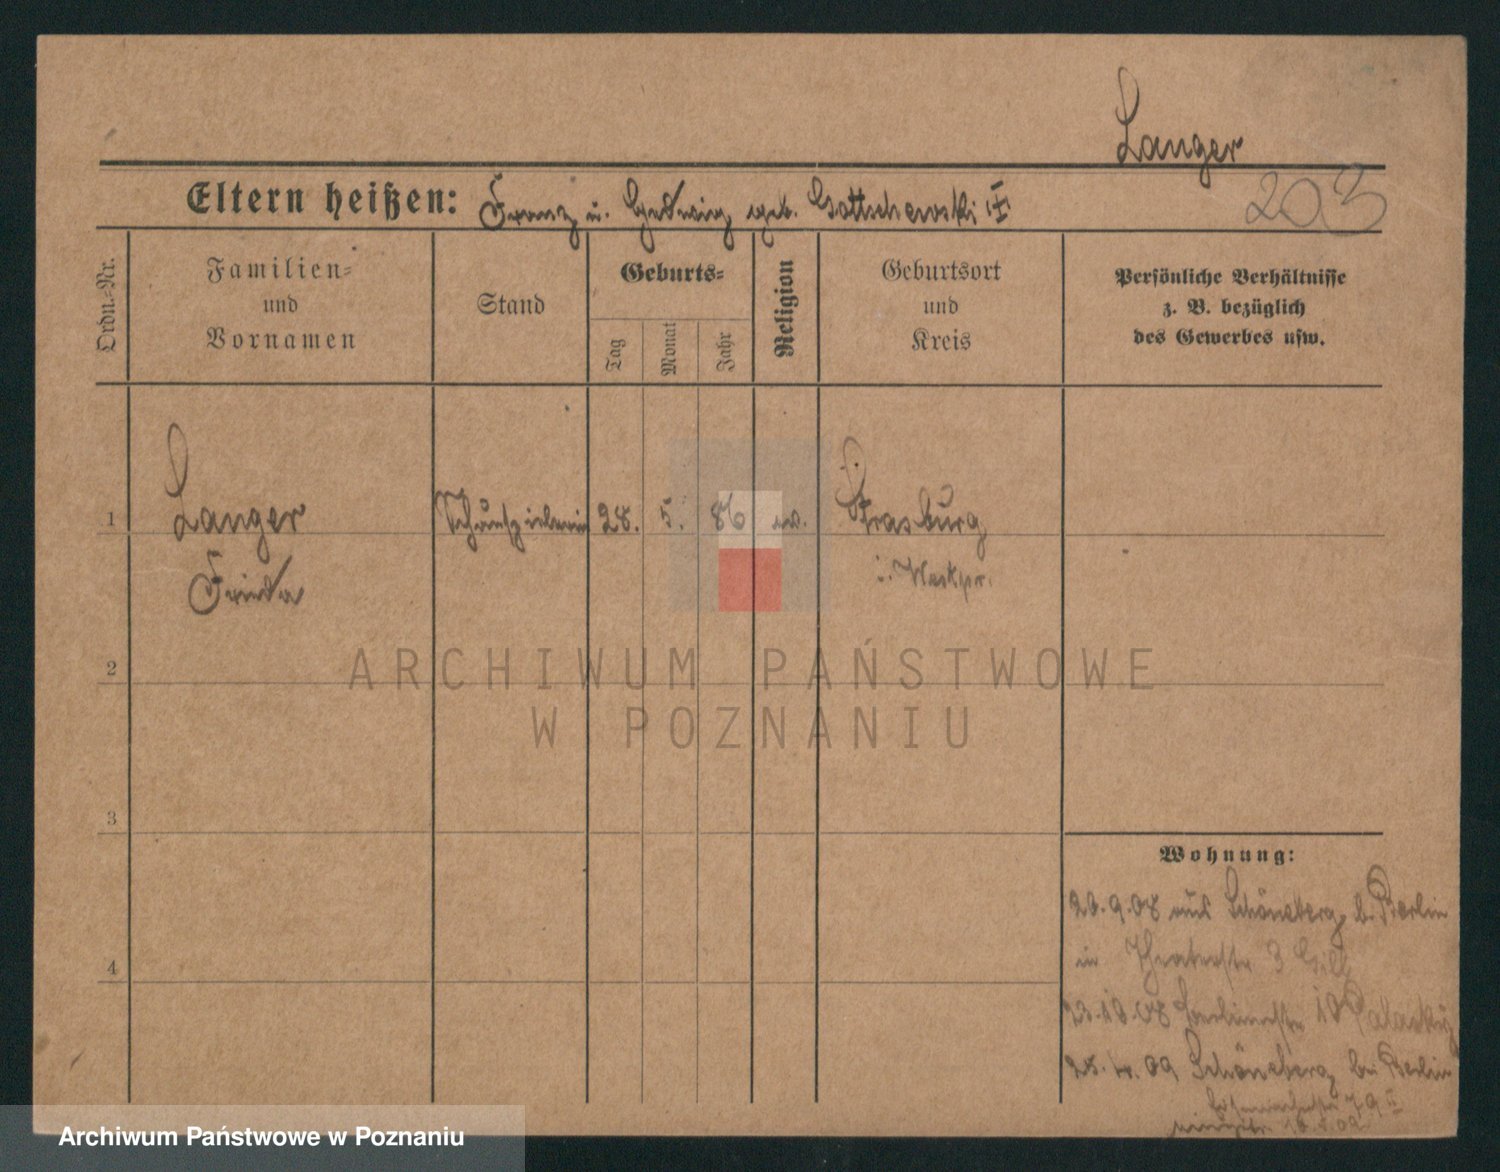 Langer
203
Eltern heißen: Franz u. Hedwig geb. Gottschewski
Ordn.-Nr.
Familien-
und
Vornamen
Stand
Geburts-
Tag
Monat
Jahr
Religion
Geburtsort
und
Kreis
Persönliche Verhältnisse
z. B. bezüglich
des Gewerbes usw.
1
Langer Schauspielerin 28. 5. 86 ev. Strasburg
Frieda i. Westpr.
2
ARCHIWUM PAŃSTWOWE
W POZNANIU
3
Wohnung:
20.9.08 aus Schöneberg b. Berlin
4
in Theaterstr 3
23.10.08 10
28. 4. 09 Schöneberg bei Berlin
79 II
Archiwum Państwowe w Poznaniu